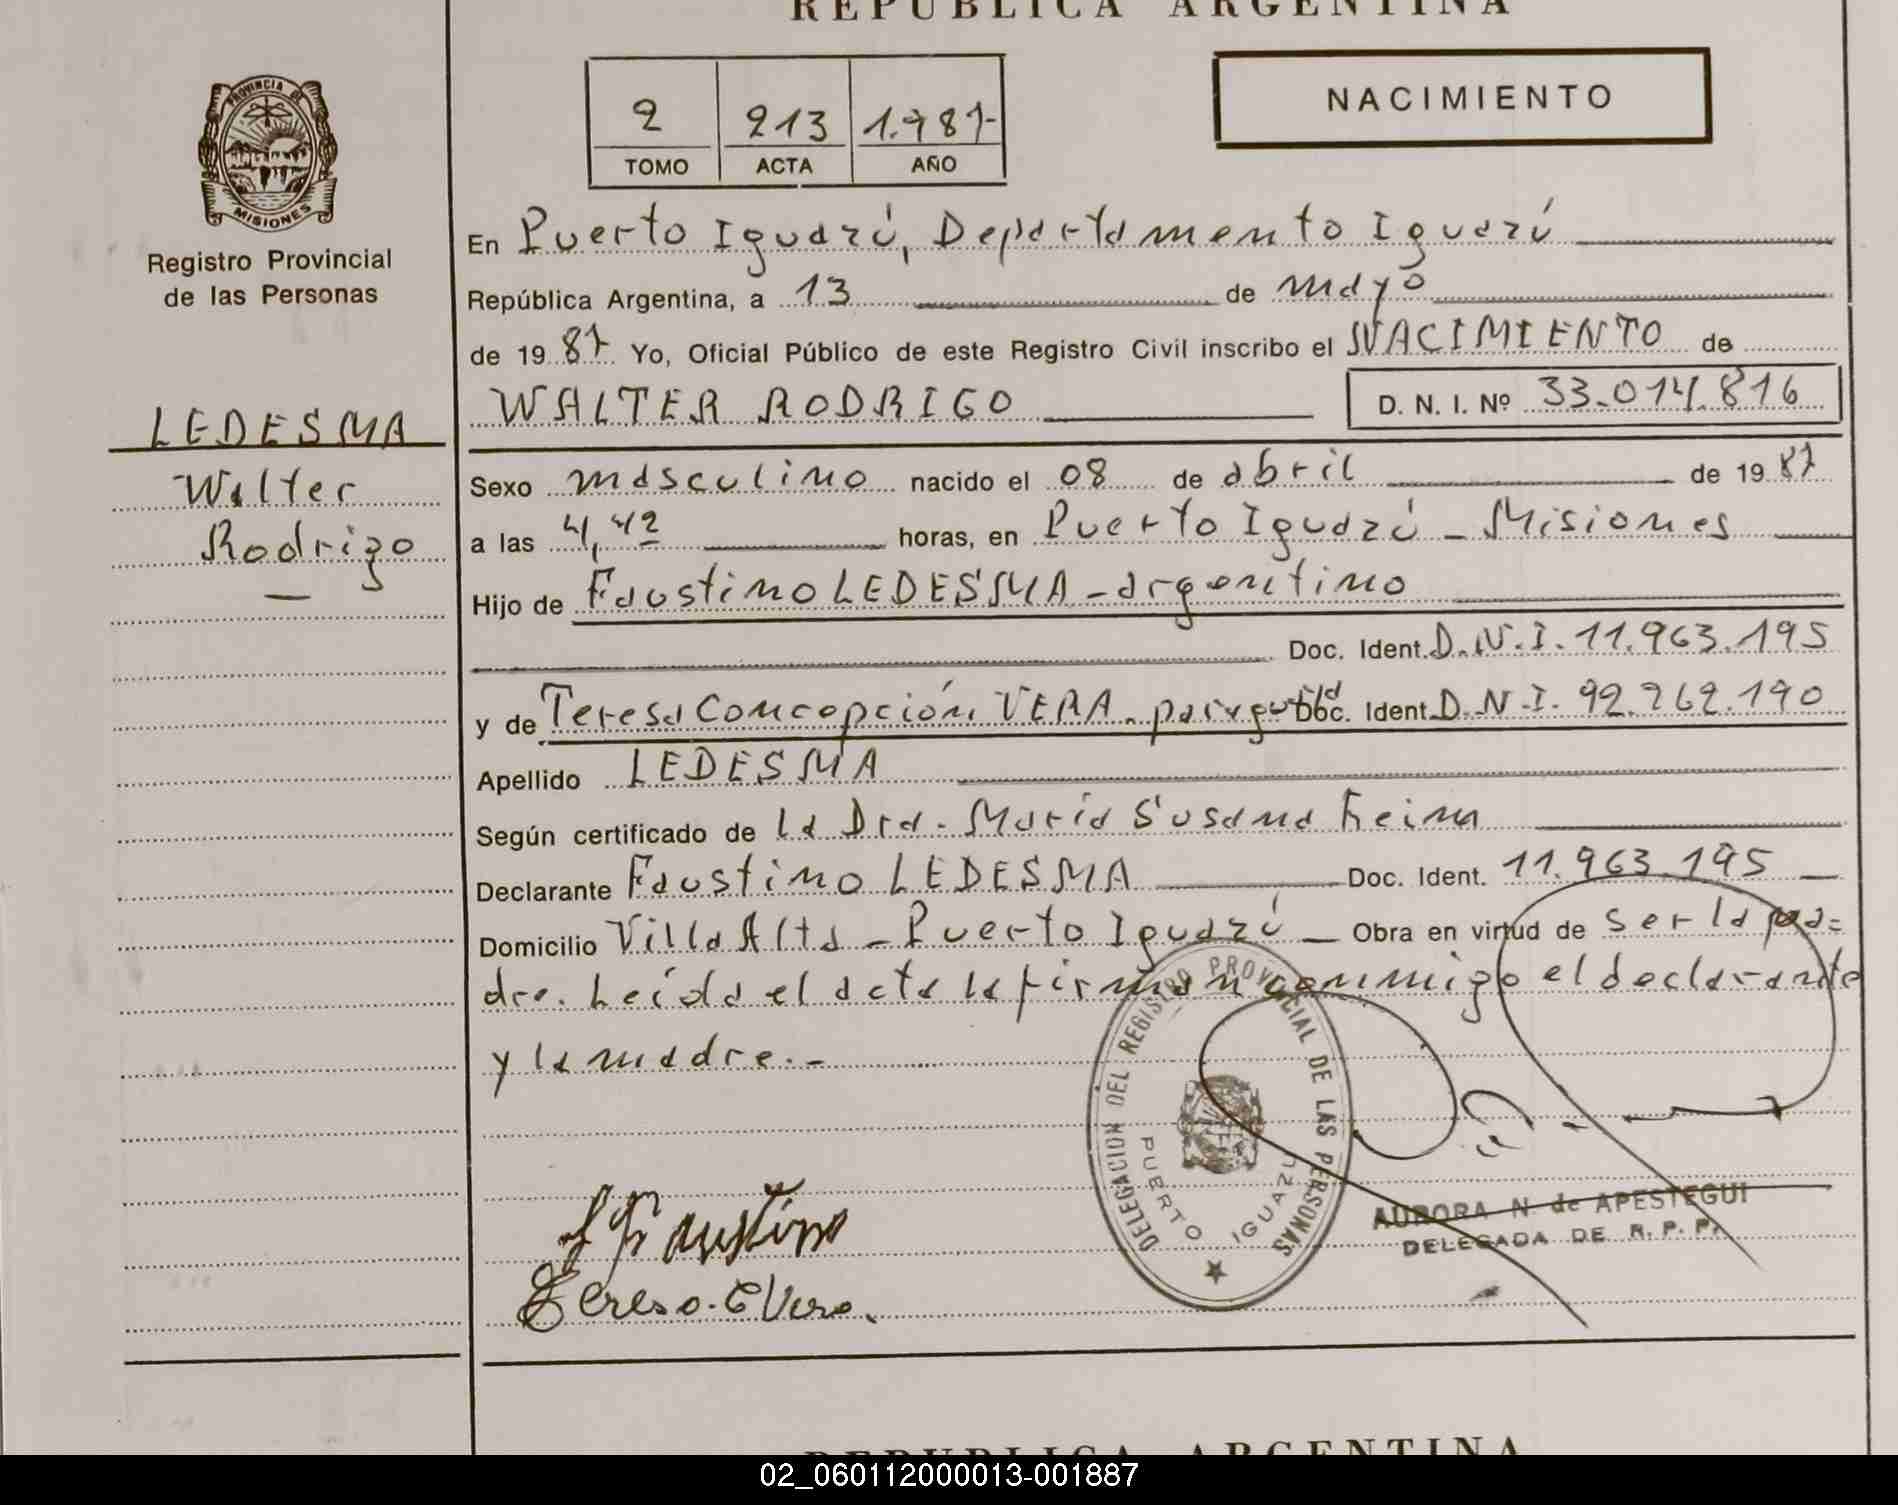 REPUBLICA ARGENTINA
PROVINCIA DE
MISIONES
Registro Provincial
de las Personas
2 213 1.987-
TOMO ACTA AÑO
NACIMIENTO
En Puerto Iguazú, Departamento Iguazú
República Argentina, a 13 de mayo
de 19 87 Yo, Oficial Público de este Registro Civil inscribo el NACIMIENTO de
WALTER RODRIGO D. N. I. Nº 33.014.816
LEDESMA
Walter
Rodrigo
Sexo masculino nacido el 08 de abril de 19 87
a las 4,42 horas, en Puerto Iguazú - Misiones
Hijo de Faustino LEDESMA - argentino
Doc. Ident. D.N.I. 11.963.195
y de Teresa Concepción VERA - paraguaya Doc. Ident. D.N.I. 92.262.190
Apellido LEDESMA
Según certificado de la Dra. María Susana
Declarante Faustino LEDESMA Doc. Ident. 11.963.195
Domicilio Villa Alta - Puerto Iguazú - Obra en virtud de ser la pa=
dre. Leída el acta la firman conmigo el declarante
y la madre.-
DELEGACION DEL REGISTRO PROVINCIAL DE LAS PERSONAS
PUERTO IGUAZU
L Faustino
Teresa. C Vera.
AURORA N. de APESTEGUI
DELEGADA DE R. P. P.
REPUBLICA ARGENTINA
02_060112000013-001887